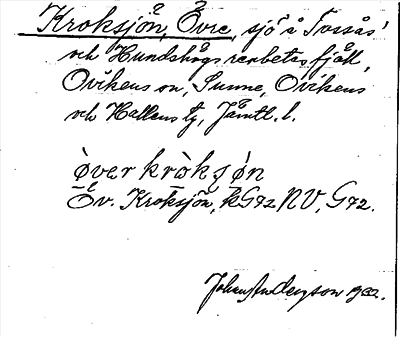 Kroksjön, Övre, sjö å Tossås'
och Hundshögs renbetesfjäll,
Ovikens sn, Sunne, Ovikens
och Hallens tg, Jämtl. l.
òver kròksjøn
Öv. Kroksjön, kG72 NV, G72.
Johan Anderson 1932.